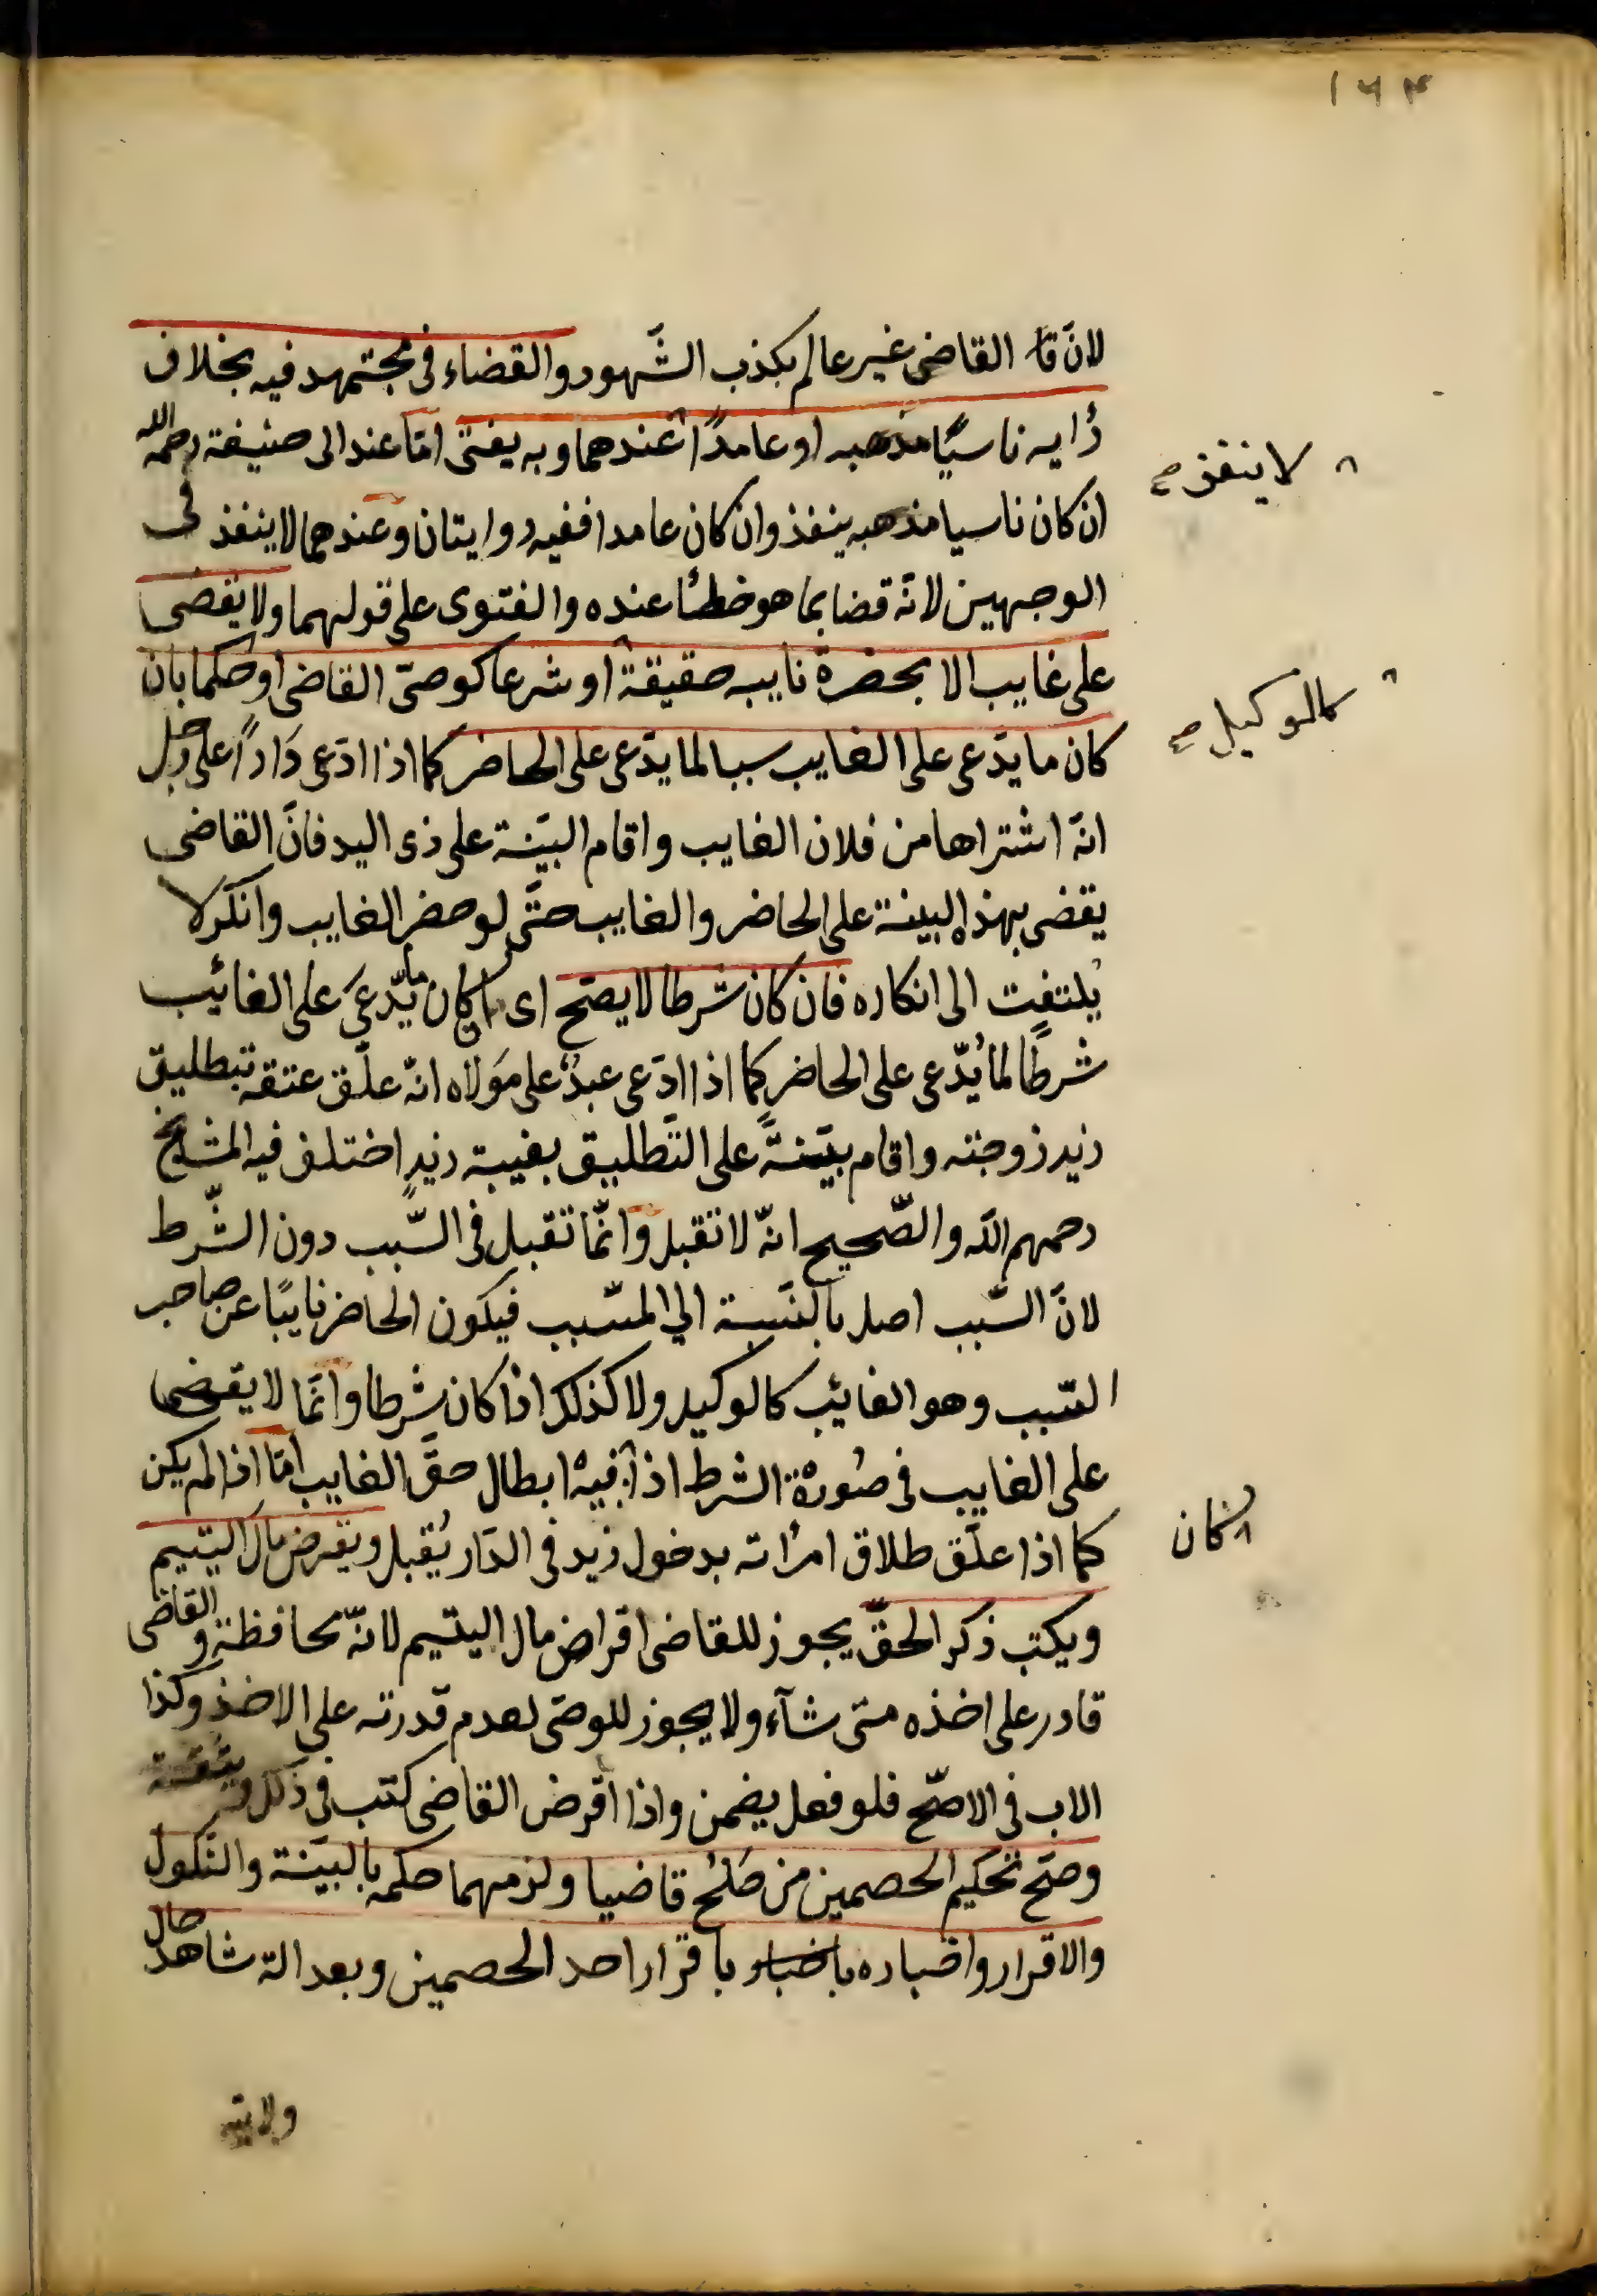 ١٦٤
لانّ قا القاضى غير عالم بكذب الشّهود والقضاء فى مجتهد فيه بخلاف
رأيه ناسيًا مذهبه او عامدًا عندهما وبه يفتى امّا عند ابى حنيفة رحمه الله
لا ينفذ صح
ان كان ناسيا مذهبه ينفذ وان كان عامدا ففيه روايتان وعندهما لا ينفذ فى
الوجهين لانّه قضا بما هو خطئا عنده والفتوى على قولهما ولا يقضى
على غايب الا بحضرة نايبه حقيقة او شرعا كوصىّ القاضى او حكما بان
كالوكيل صح
كان ما يدّعى على الغايب سببا لما يدّعى على الحاضر كما اذا ادّعى دَارًا على رجل
انّه اشتراها من فلان الغايب واقام البيّنة على ذى اليد فانّ القاضى
يقضى بهذه البينة على الحاضر والغايب حتّى لو حضر الغايب وانكر لا
يُلتفت الى انكاره فان كان شرطا لا يصحّ اى ان كان ما يدّعى على الغائب
شرطًا لما يُدّعى على الحاضر كما اذا ادّعى عبدٌ على مَولاه انّه علّق عتقه بتطليق
زيد زوجته واقام بيّنةً على التّطليق بغيبة زيدٍ اختلف فيه المشايخ
رحمهم الله والصّحيح انّه لا تقبل وانّما تقبل فى السّبب دون الشّرط
لانّ السّبب اصل بالنّسبة الي المسّبب فيكون الحاضر نايبًا عن صاحب
السّبب وهو الغائب كالوكيل ولا كذلك اذا كان شرطا وانّما لا يقضى
على الغايب فى صُورة الشرط اذا فيه ابطال حقّ الغايب امّا اذا لم يكن
كان
كما اذا علّق طلاق امرأته بدخول زيد فى الدّار يُقبل ويقرض مال اليتيم
ويكتب ذكر الحقّ يجوز للقاضى اقراض مال اليتيم لانّه محافظة والقاضى
قادر على اخذه متى شآء ولا يجوز للوصى لعدم قدرته على الاخذ وكذا
الاب فى الاصّح فلو فعل يضمن واذا اقرض القاضى كتب فى ذلك وثيقة
وصحّ تحكيم الخصمين من صَلُحَ قاضيا ولزمهما حكمه بالبيّنة والنّكول
والاقرار واخباره باخبار باقرار احد الخصمين وبعدالة شاهد حال
ولايته